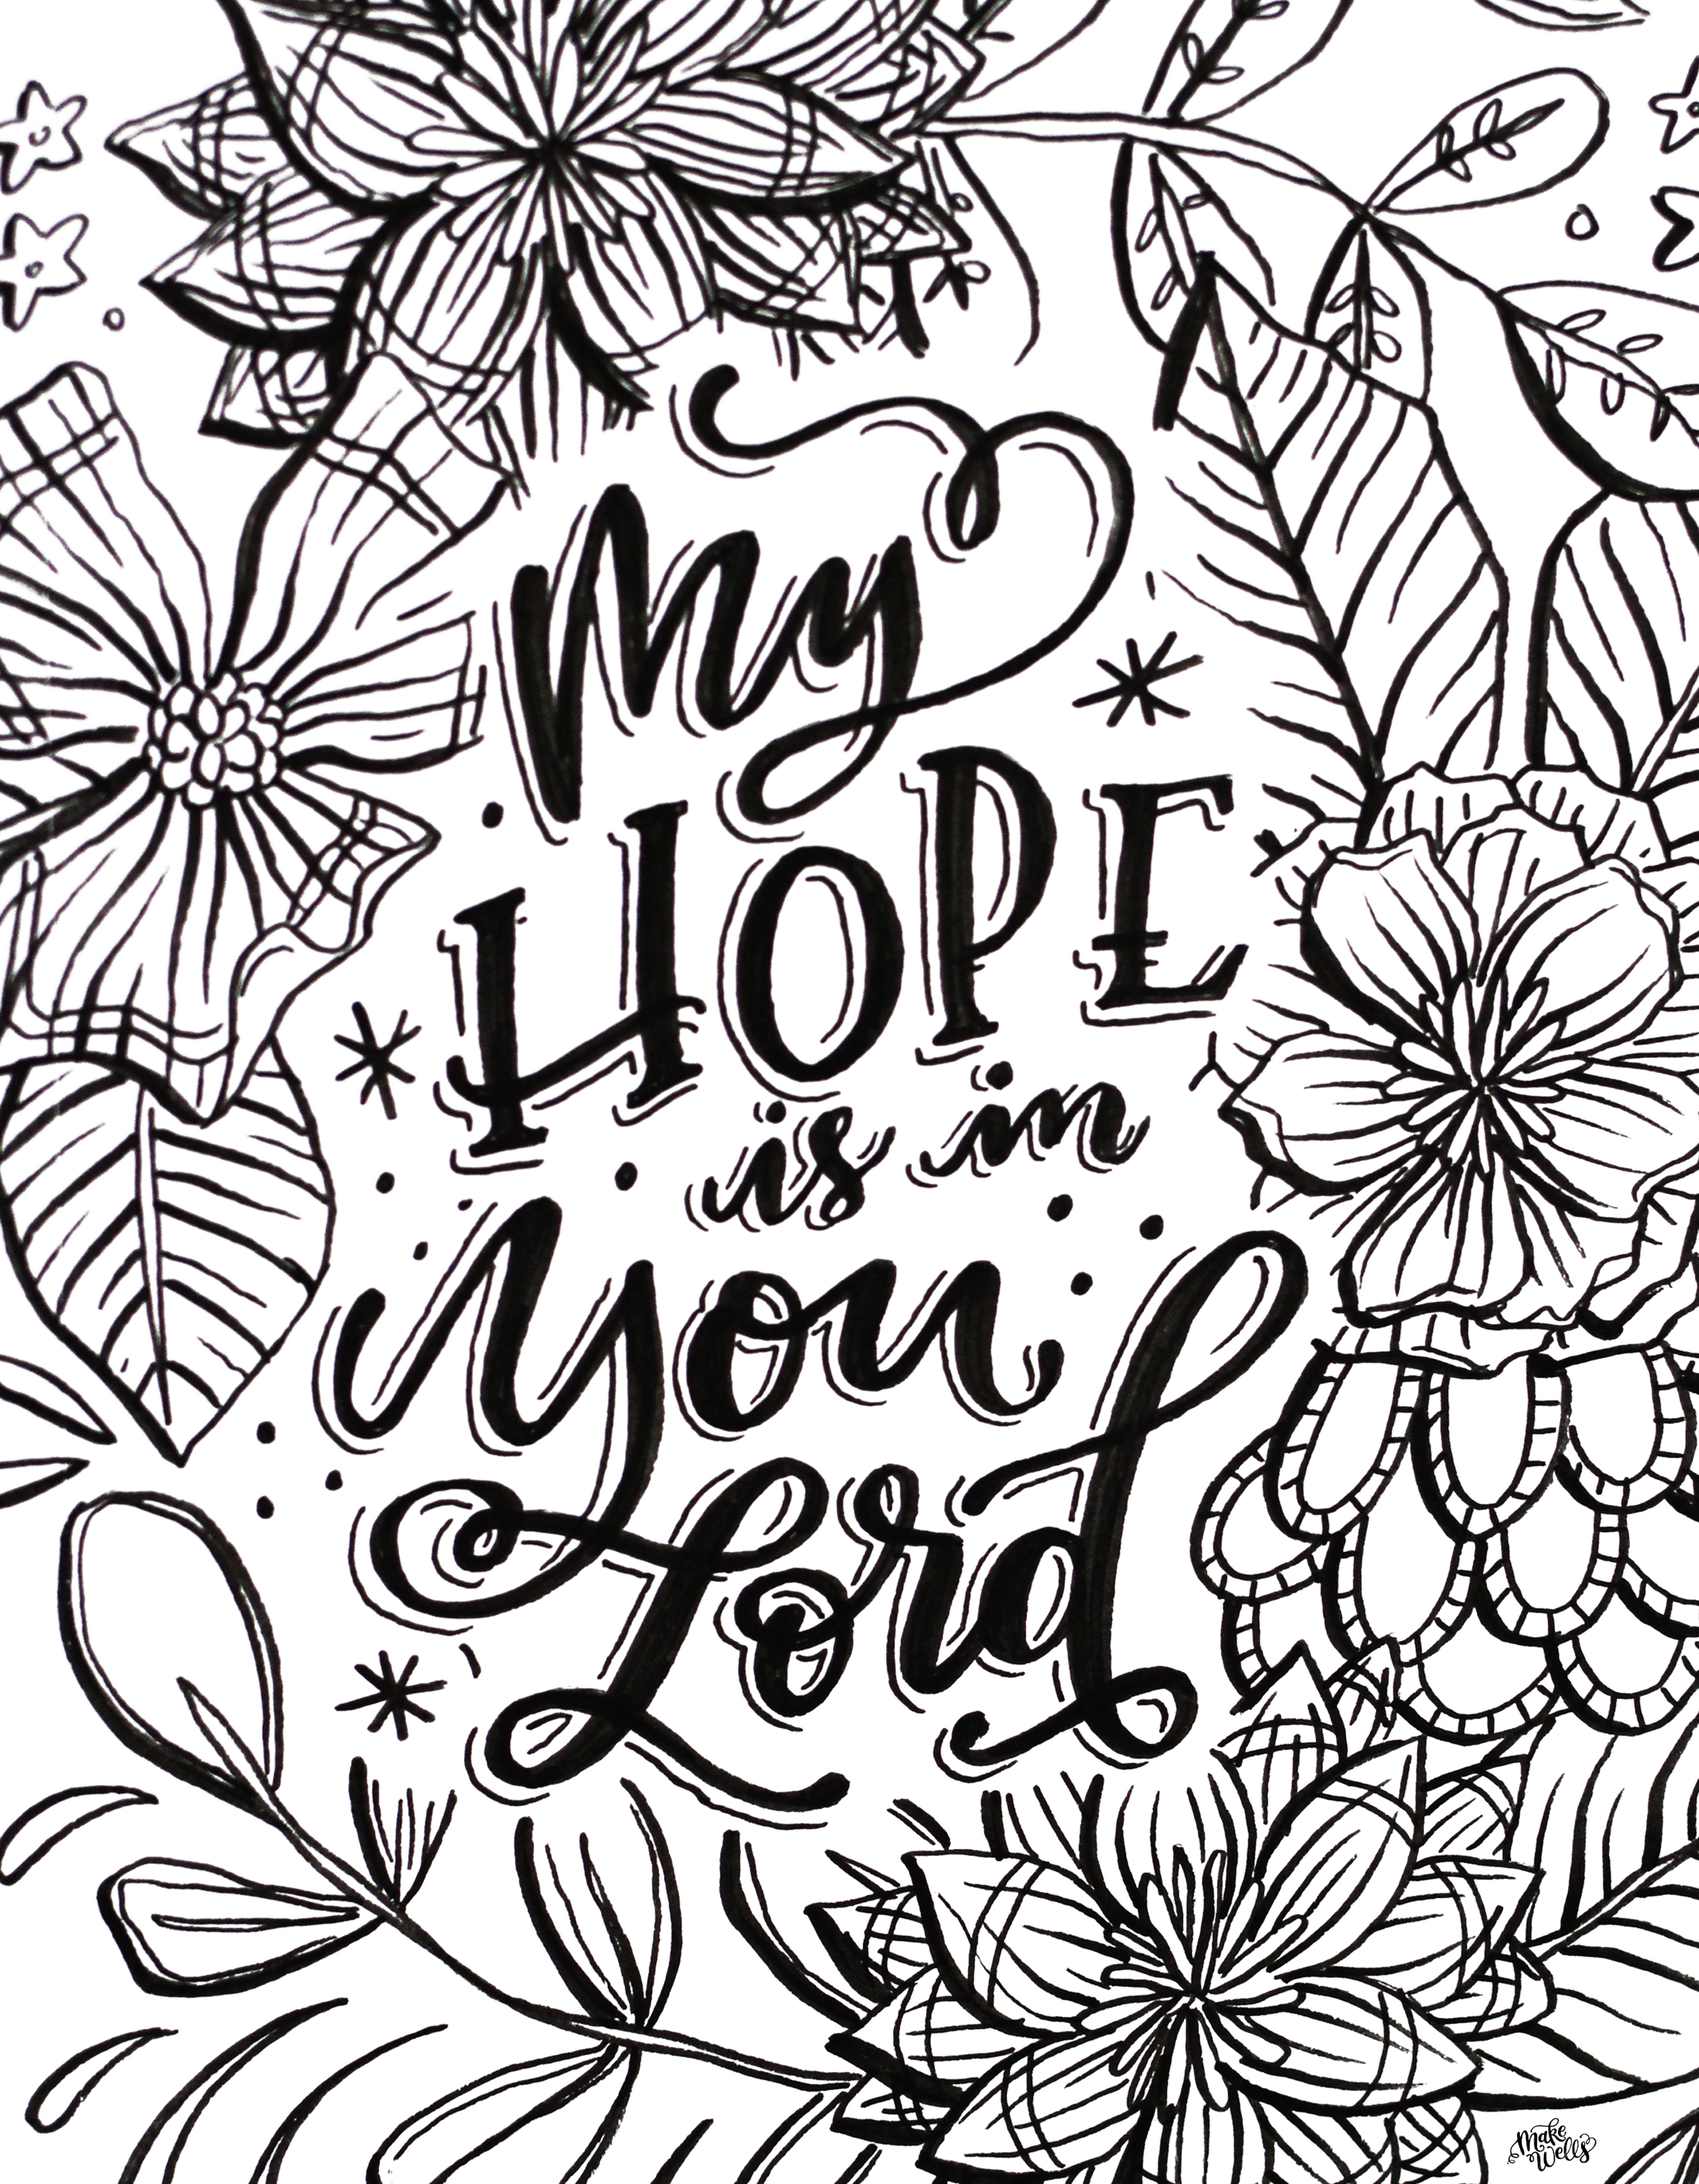 My
HOPE
is in
You
Lord
Make
Wells